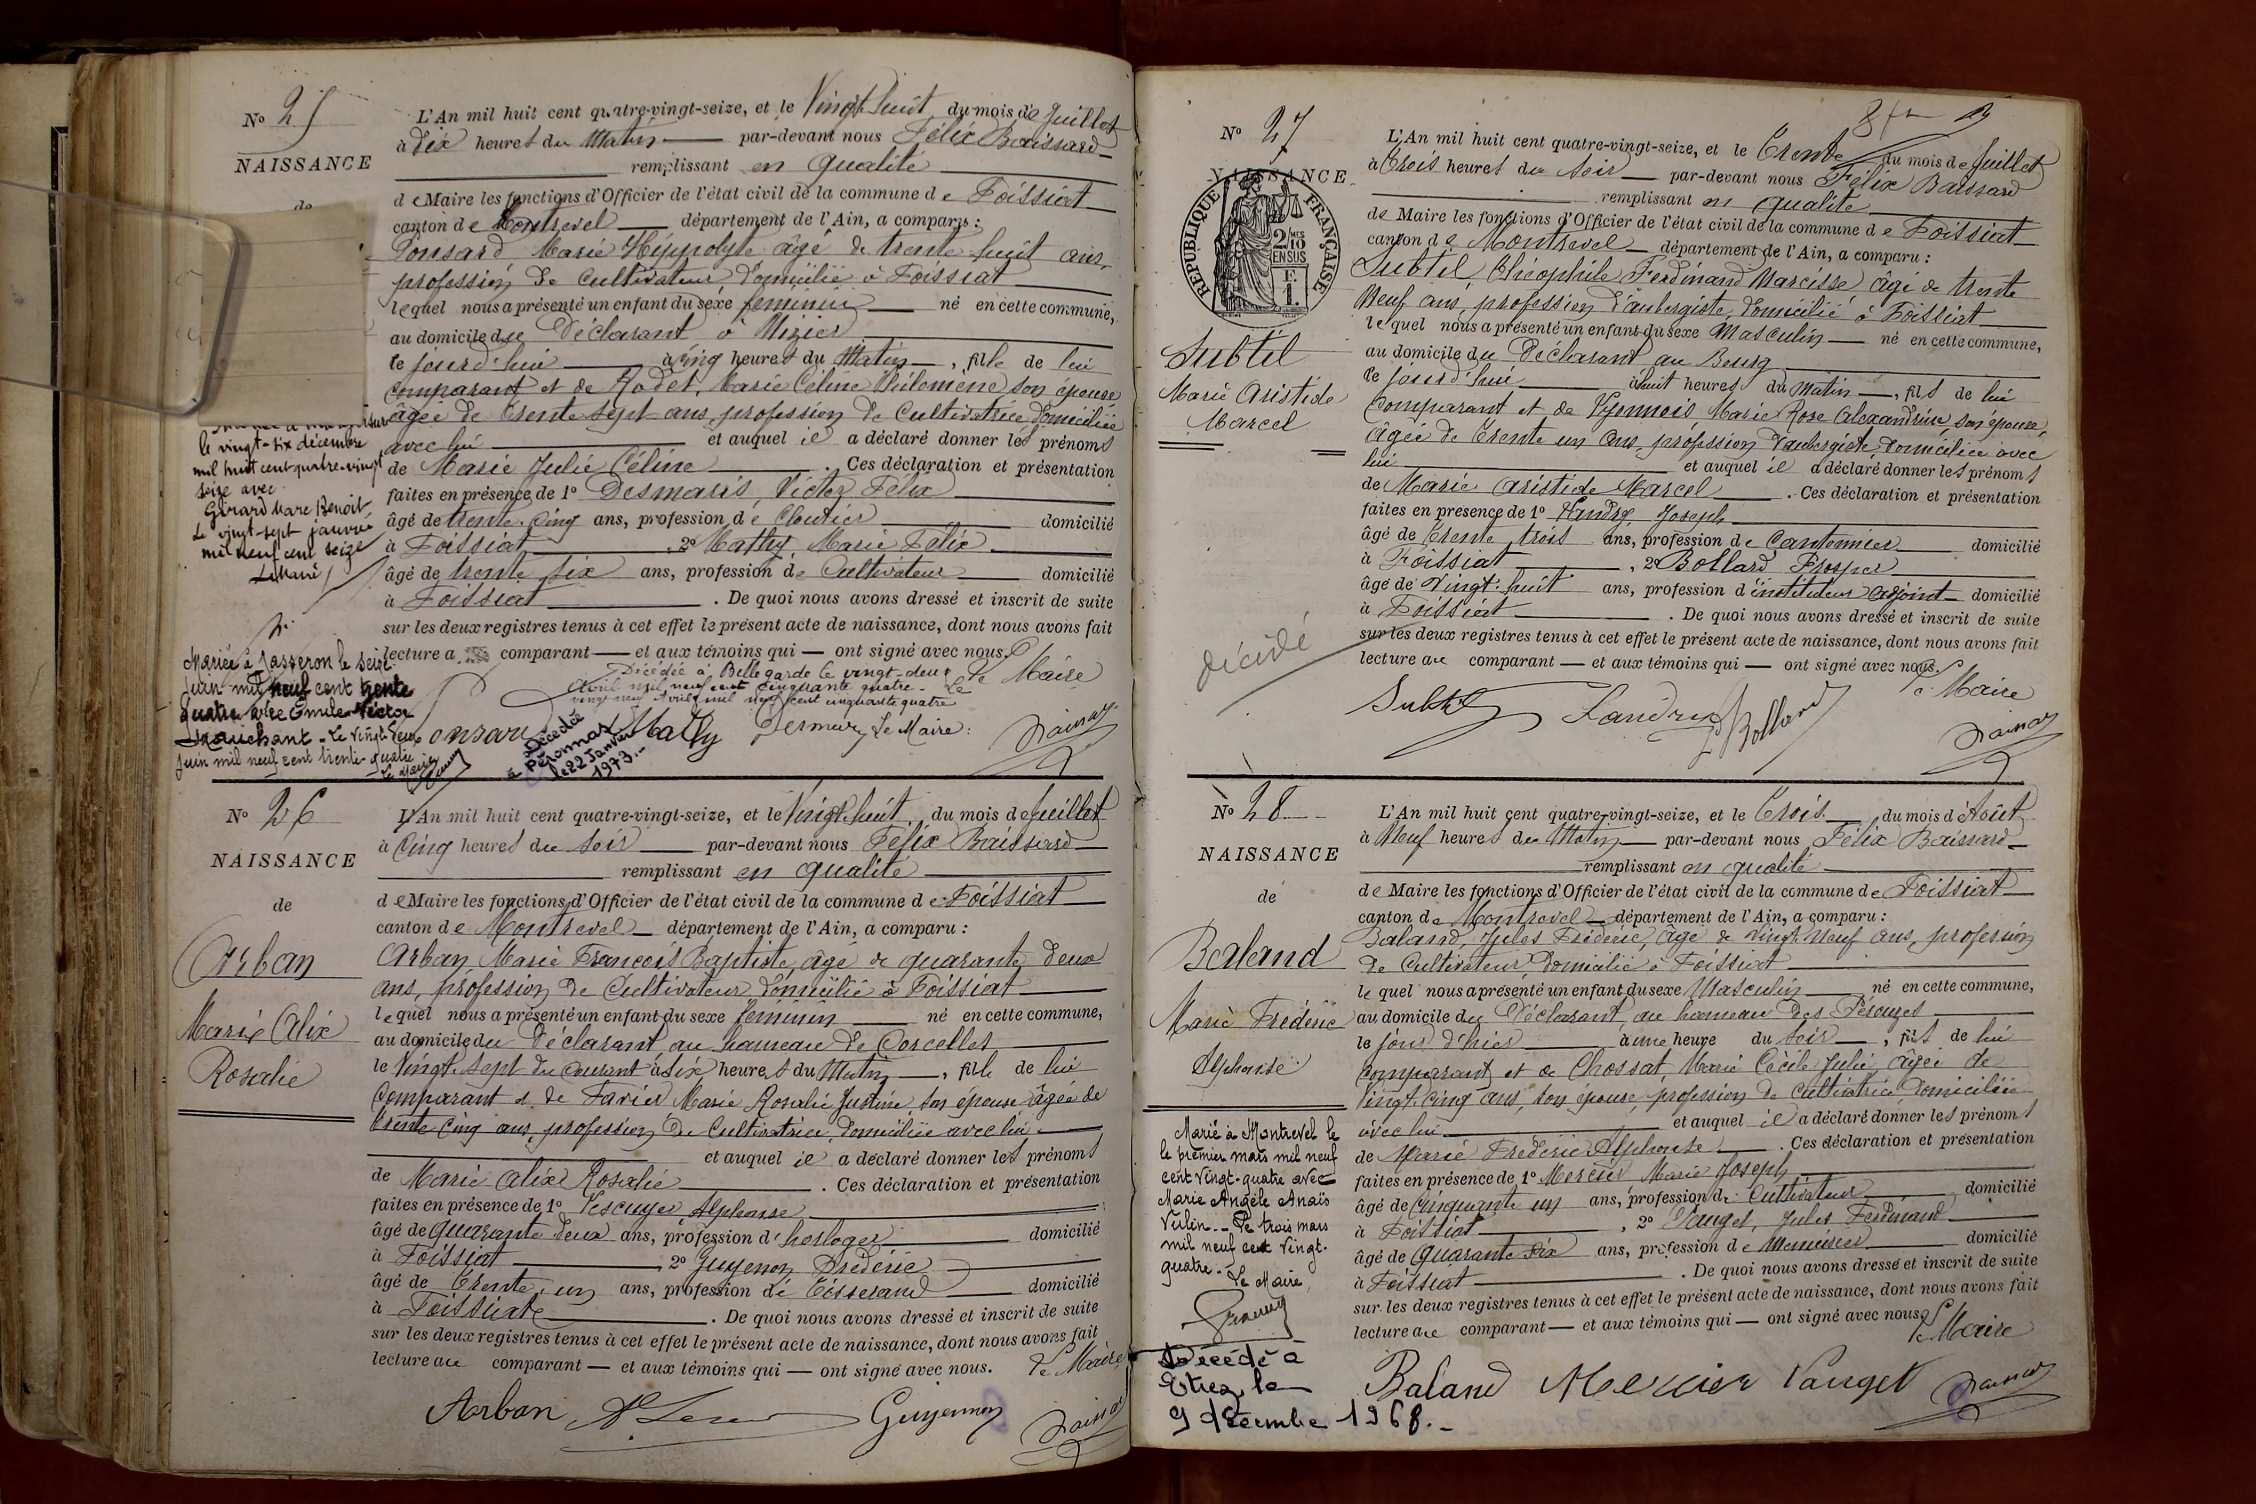 Nº 25
NAISSANCE
de
le vingt-six décembre
mil huit cent quatre-vingt
seize avec
Gérard Marc Benoit
Le vingt-sept janvier
mil neuf cent seize
Mariée à Jasseron le seize
juin mil neuf cent trente
quatre avec Emile Victor
Le vingt-deux
juin mil neuf cent trente-quatre
Le Maire
L'An mil huit cent quatre-vingt-seize, et le Vingt huit du mois de Juillet
à Dix heures du Matin par-devant nous Félix Baissard
remplissant en qualité
de Maire les fonctions d'Officier de l'état civil de la commune de Foissiat
canton de Montrevel département de l'Ain, a comparu :
Ponsard Marie Hyppolyte âgé de trente huit ans,
profession de Cultivateur domicilié à Foissiat
lequel nous a présenté un enfant du sexe féminin né en cette commune,
au domicile du Déclarant à Mizier
le jourd'hui à Cinq heures du Matin, fille de lui
comparant et de Rodet, Marie Céline Philomène son épouse
âgée de trente sept ans, profession de Cultivatrice domiciliée
avec lui et auquel il a déclaré donner les prénoms
de Marie Julie Céline. Ces déclaration et présentation
faites en présence de 1º Desmaris, Victor Félix
âgé de trente cinq ans, profession de Cloutier domicilié
à Foissiat, 2º Mathy Marie Félix
âgé de trente six ans, profession de Cultivateur domicilié
à Foissiat. De quoi nous avons dressé et inscrit de suite
sur les deux registres tenus à cet effet le présent acte de naissance, dont nous avons fait
lecture a comparant — et aux témoins qui — ont signé avec nous.
Le Maire
Décédée à Bellegarde le vingt-deux
Avril mil neuf cent cinquante quatre. Le
vingt-neuf Avril mil neuf cent cinquante quatre
Le Maire :
Décédée
à Péronnas
le 22 Janvier
1973.-
Nº 26
NAISSANCE
de
Arban
Marie Alix
Rosalie
L'An mil huit cent quatre-vingt-seize, et le Vingt huit du mois de Juillet
à Cinq heures du Soir par-devant nous Félix Baissard
remplissant en qualité
de Maire les fonctions d'Officier de l'état civil de la commune de Foissiat
canton de Montrevel département de l'Ain, a comparu :
Arban Marie François Baptiste, âgé de quarante deux
ans, profession de Cultivateur domicilié à Foissiat
lequel nous a présenté un enfant du sexe féminin né en cette commune,
au domicile du Déclarant, au hameau de Corcelles
le Vingt sept du courant à six heures du Matin, fille de lui
comparant et de Favier Marie Rosalie Justine, son épouse âgée de
trente cinq ans, profession de Cultivatrice, domiciliée avec lui
et auquel il a déclaré donner les prénoms
de Marie Alix Rosalie. Ces déclaration et présentation
faites en présence de 1º Lescuyer Alphonse
âgé de quarante deux ans, profession d'horloger domicilié
à Foissiat, 2º Guyennon Frédéric
âgé de trente un ans, profession de Tisserand domicilié
à Foissiat. De quoi nous avons dressé et inscrit de suite
sur les deux registres tenus à cet effet le présent acte de naissance, dont nous avons fait
lecture au comparant — et aux témoins qui — ont signé avec nous. Le Maire
Arban Guyennon
Nº 27
NAISSANCE
RÉPUBLIQUE FRANÇAISE
2/10 MES
EN SUS
F
1.
Subtil
Marie Aristide
Marcel
Décédé
L'An mil huit cent quatre-vingt-seize, et le Trente du mois de Juillet
à Trois heures du Soir par-devant nous Félix Baissard
remplissant en qualité
de Maire les fonctions d'Officier de l'état civil de la commune de Foissiat
canton de Montrevel département de l'Ain, a comparu :
Subtil, Théophile Ferdinand Narcisse âgé de trente
Neuf ans, profession d'aubergiste, domicilié à Foissiat
lequel nous a présenté un enfant du sexe Masculin né en cette commune,
au domicile du Déclarant au Bourg
le jourd'hui à huit heures du Matin, fils de lui
comparant et de Vyonnois Marie Rose Alexandrine, son épouse,
âgée de trente un ans, profession d'aubergiste, domiciliée avec
lui et auquel il a déclaré donner les prénoms
de Marie Aristide Marcel. Ces déclaration et présentation
faites en présence de 1º Landry Joseph
âgé de trente trois ans, profession de Cantonnier domicilié
à Foissiat, 2º Bolland Prosper
âgé de vingt huit ans, profession d'instituteur adjoint domicilié
à Foissiat. De quoi nous avons dressé et inscrit de suite
sur les deux registres tenus à cet effet le présent acte de naissance, dont nous avons fait
lecture au comparant — et aux témoins qui — ont signé avec nous.
Le Maire
Subtil Landry Bolland
Nº 28
NAISSANCE
de
Baland
Marie Frédéric
Alphonse
Marié à Montrevel le
le premier mars mil neuf
cent vingt-quatre avec
Marie Angèle Anaïs
Le trois mars
mil neuf cent vingt-
quatre.-
Le Maire,
Décédé à
Etrez le
9 décembre 1968.-
L'An mil huit cent quatre-vingt-seize, et le Trois du mois d'Août
à Neuf heures du Matin par-devant nous Félix Baissard
remplissant en qualité
de Maire les fonctions d'Officier de l'état civil de la commune de Foissiat
canton de Montrevel département de l'Ain, a comparu :
Baland, Jules Frédéric, âgé de vingt neuf ans, profession
de Cultivateur, domicilié à Foissiat
lequel nous a présenté un enfant du sexe Masculin né en cette commune,
au domicile du Déclarant, au hameau des Pérouzes
le jour d'hier à une heure du Soir, fils de lui
comparant et de Chossat, Marie Cécile Julie, âgée de
Vingt cinq ans, son épouse, profession de Cultivatrice, domiciliée
avec lui et auquel il a déclaré donner les prénoms
de Marie Frédéric Alphonse. Ces déclaration et présentation
faites en présence de 1º Mercier Marie Joseph
âgé de Cinquante un ans, profession de Cultivateur domicilié
à Foissiat, 2º Vauget, Jules Ferdinand
âgé de quarante six ans, profession de Menuisier domicilié
à Foissiat. De quoi nous avons dressé et inscrit de suite
sur les deux registres tenus à cet effet le présent acte de naissance, dont nous avons fait
lecture au comparant — et aux témoins qui — ont signé avec nous.
Le Maire
Baland Mercier Vauget